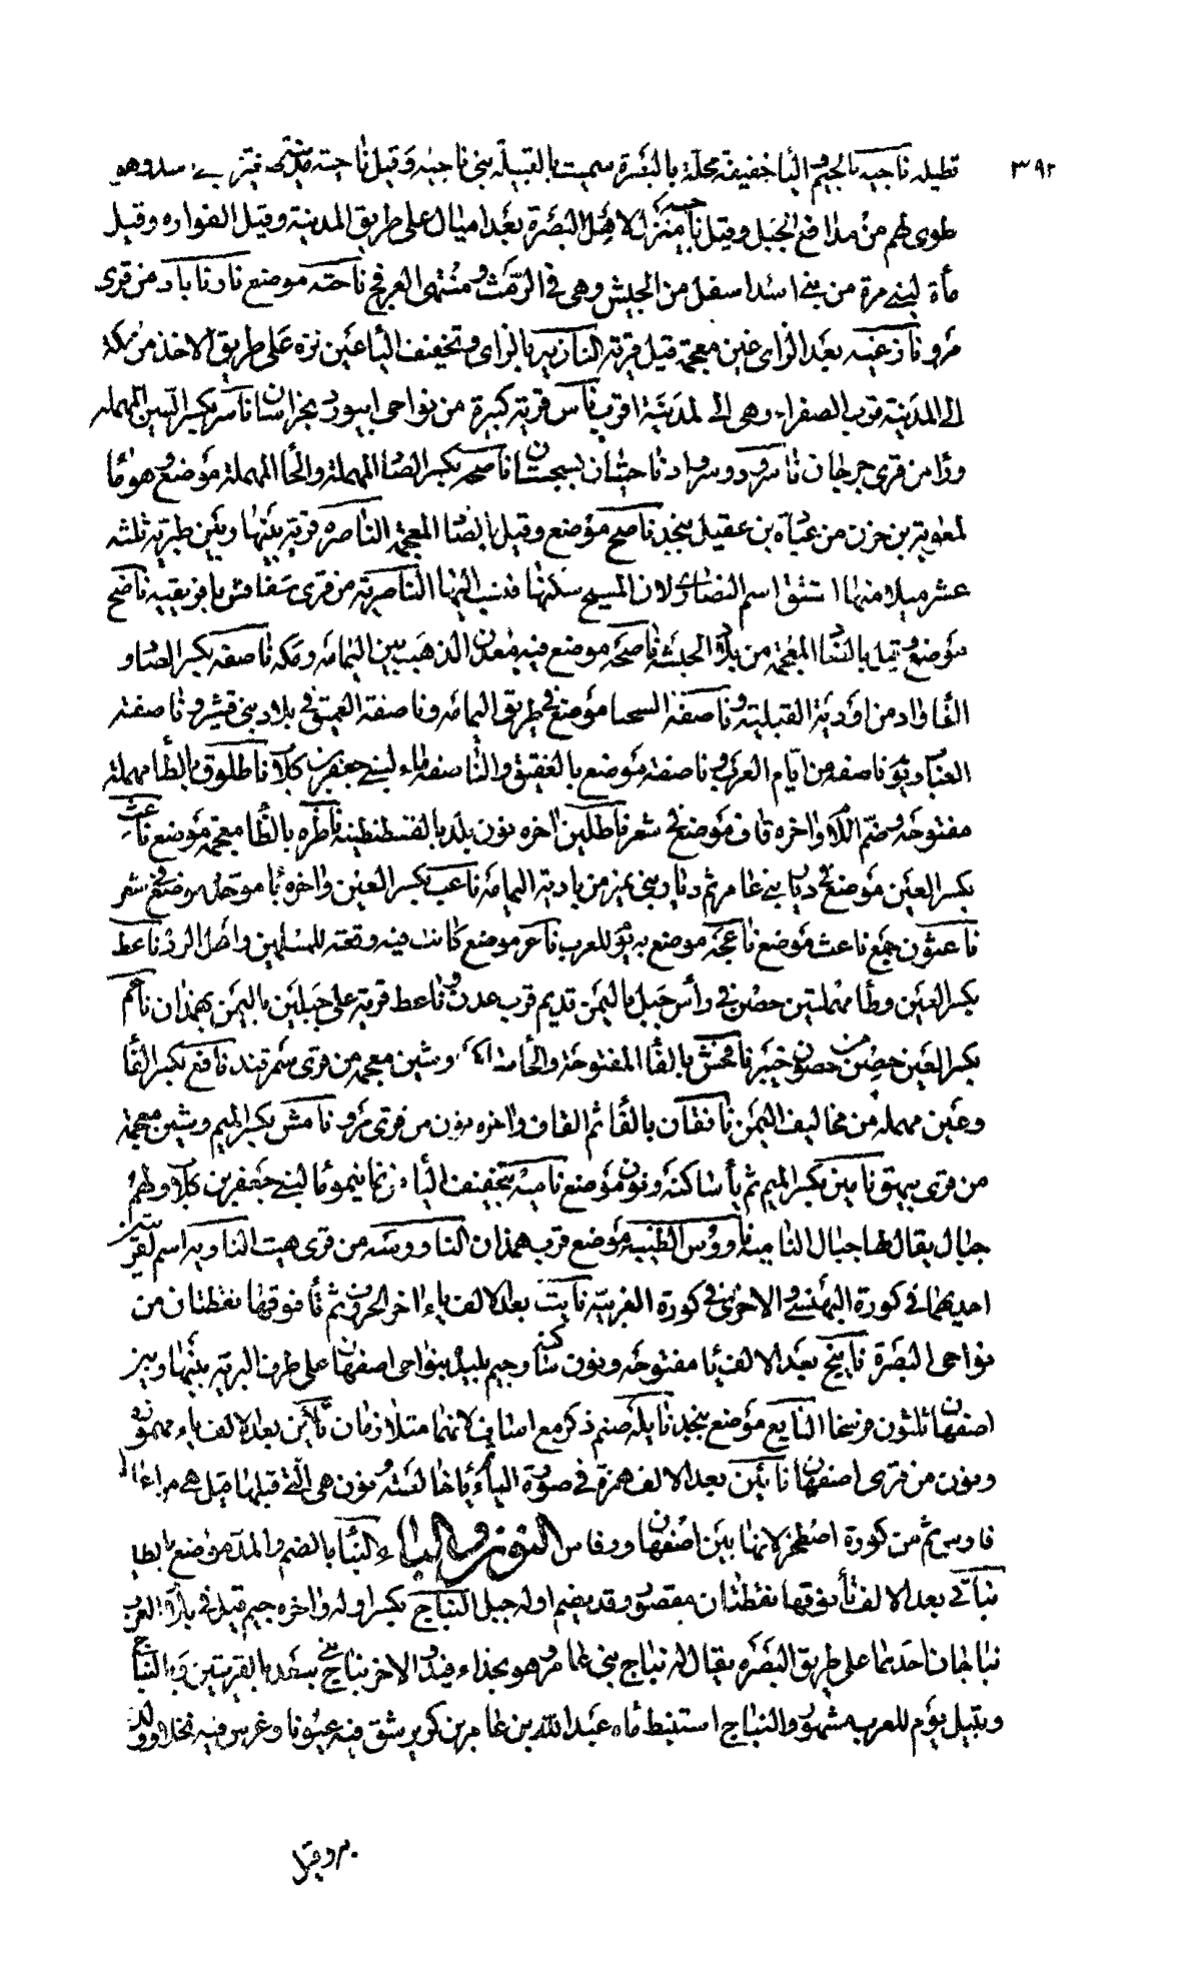 ٣٩٢
قطيله ناجيه بالجيم والياء خفيفة محلة بالبصرة سميت بالقبيلة بني ناجيه وقيل ناجيته
طوى لهم من مدافع الجبل وقيل ناجية منزل لاهل البصرة بعد اميال على طريق المدينة وقيل الفواره وقيل
ماءة لبني مرة من بني اسد اسفل من الحبش وهى في الرمث ومنتهى العرفج ناحته موضع ناوناباد من قرى
مرو نازغيه بعد الزاى غين معجمة قيل قرية النازيه بالزاى وتخفيف الياء عين نزه على طريق الاخذ من مكة
الى المدينة قرب الصفراء وهى الى المدينة اقرب ناس قرية كبيرة من نواحى ابيورد بخراسان ناسر بكسر السين المهمله
ورا من قرى جرجان ناسرود وسراد ناحيتان بسجستان ناصحه بكسر الصاد المهملة والحا المهملة موضع وهو ما
لمعوية بن حزن من عبادة بن عقيل بنجد ناصح موضع وقيل بالضاد المعجمة الناصره قرية بينها وبين طبرية ثلثه
عشر ميلا منها اشتق اسم النصارى ولان المسيح سكنها فنسب اليها الناصرية من قرى سفاقس بافريقيه ناضح
موضع وقيل بالضاد المعجمة من بلاد الحبشة ناصحة موضع فيه معدن الذهب بين اليمامه ومكه ناصفه بكسر الصاد و
الفا واد من اودية القبلية وناصفة السحما موضع في طريق اليمامه وناصفة العميق في بلاد بني قشير وناصفة
العناب ويوم ناصفه من ايام العرب وناصفة موضع بالعقيق والناصفه ماء لبني جعفر بن كلاب ناطلوق بالطا مهملة
مفتوحة وضم اللام واخره قاف موضع في شعر ناطلين اخره نون بلد بالقسطنطينه ناظره بالظا معجمة موضع ناعت
بكسر العين موضع في ديار بني عامر ثم ديار بني نمير من بادية اليمامة ناعب بكسر العين واخره با موحده موضع في شعر
ناعثون جمع ناعث موضع ناعجه موضع به يوم للعرب ناعر موضع كانت فيه وقعه للمسلمين واهل الردة ناعط
بكسر العين وطا مهملتين حصن في رأس جبل باليمن قديم قرب عدن وناعط قرية على جبلين باليمن بهمدان ناعم
بكسر العين حصن من حصون خيبر نافخش بالفا المفتوحة والخا وشين معجمه من قرى سمرقند نافع بكسر الفا
وعين مهمله من مخاليف اليمن نافقان بالفا ثم القاف واخره نون من قرى مرو نامش بكسر الميم وشين معجمة
من قرى بيهق نامين بكسر الميم ثم يا ساكنة ونون موضع ناميه بتخفيف الياء ما لبني جعفر بن كلاب ولهم
جبال يقال لها جبال الناميه ناووس الظبيه موضع قرب همذان الناووسه من قرى هيت الناويه اسم لقريتين
احديهما في كورة البهنسى والاخرى في كورة الغربية نايت بعد الالف ياء اخر الحروف ثم تا فوقها نقطتان من
نواحى البصرة نايخ بعد الالف يا مفتوحه ونون ساكنه وجيم بليده بنواحى اصفهان على طرف البرية بينها وبين
اصفهان ثلثون فرسخا النايع موضع بنجد نايله صنم ذكر مع اساف لانهما متلازمان نائن بعد الالف ياء مهموزه
ونون من قرى اصفهان نائين بعد الالف همزة في صورة الياء ويا خالصة ونون هى التى قبلها قيل هى من
فارس ثم من كورة اصطخر لانها بين اصفهان وفارس النون والباء النبا بالضم والمد موضع بالطا
نباتى بعد الالف تا فوقها نقطتان مقصور وقد يضم اوله جبل النباج بكسر اوله واخره جيم قيل في بلاد العرب
نباجان احدهما على طريق البصره يقال له نباج بني عامر وهو بحذاء فيد والاخر نباج بني سعد بالقريتين والنباج
وبتيل يوم للعرب مشهور والنباج استنبط ماءه عبد الله بن عامر بن كريز شق فيه عيونا وغرس فيه نخلا وولد
به وقيل